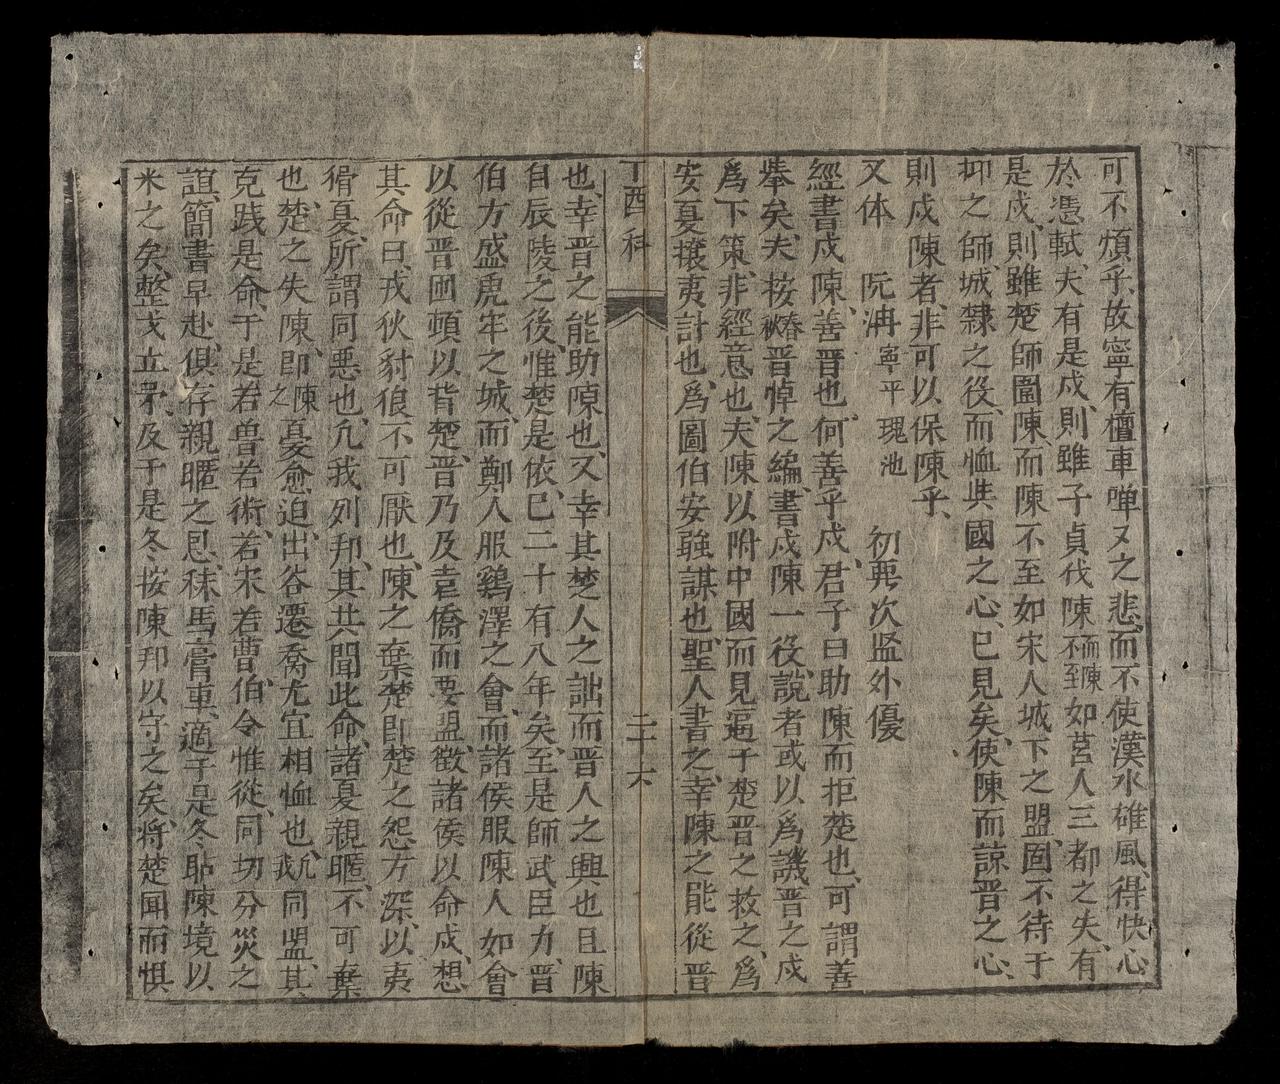 可不煩乎、故寧有檀車嘽〻之悲、而不使漢水雄風、得快心
於憑軾、夫有是戍、則雖子貞伐陳而陳不至如莒人三都之失、有
是戍、則雖楚師圍陳而陳不至如宋人城下之盟、固不待于
抑之師、城隸之役、而恤其國之心、已見矣、使陳而諒晋之心、
則戍陳者、非可以保陳乎、
又体 阮冉 寧平瑰池 初再次监外優
經書戍陳、善晋也、何善乎戍、君子曰助陳而拒楚也、可謂善
舉矣、夫按春秋晋悼之編、書戍陳一役、說者或以為譏晋之戍
為下策、非經意也、夫陳以附中國而見逼于楚晋之救之、為
安夏攘夷計也、為圖伯安強謀也、聖人書之、幸陳之能從晋
丁酉科
二十六
也、幸晋之能助陳也、又幸其楚人之詘而晋人之興也且陳
自辰陵之後、惟楚是依、已二十有八年矣、至是師武臣力、晋
伯方盛、虎牢之城、而鄭人服、鷄澤之會、而諸侯服陳人如會
以從晋國頓以背楚、晋乃及袁僑而要盟、徵諸侯以命戍、想
其命曰、戎狄豺狼不可厭也、陳之棄楚即楚之怨、方深、以夷
猾夏、所謂同惡也、凢我列邦、其共聞此命、諸夏親暱、不可棄
也、楚之失陳、即陳之憂愈迫、出谷遷喬尤宜相恤也、凢我同盟、其
克践是命、于是若魯若衛、若宋若曹、伯令惟從、同切分災之
誼、簡書早赴、俱存親暱之恩、秣馬膏車、適于是冬助陳境以
米之矣、整戈立矛、及于是冬、按陳邦以守之矣、將楚聞而惧